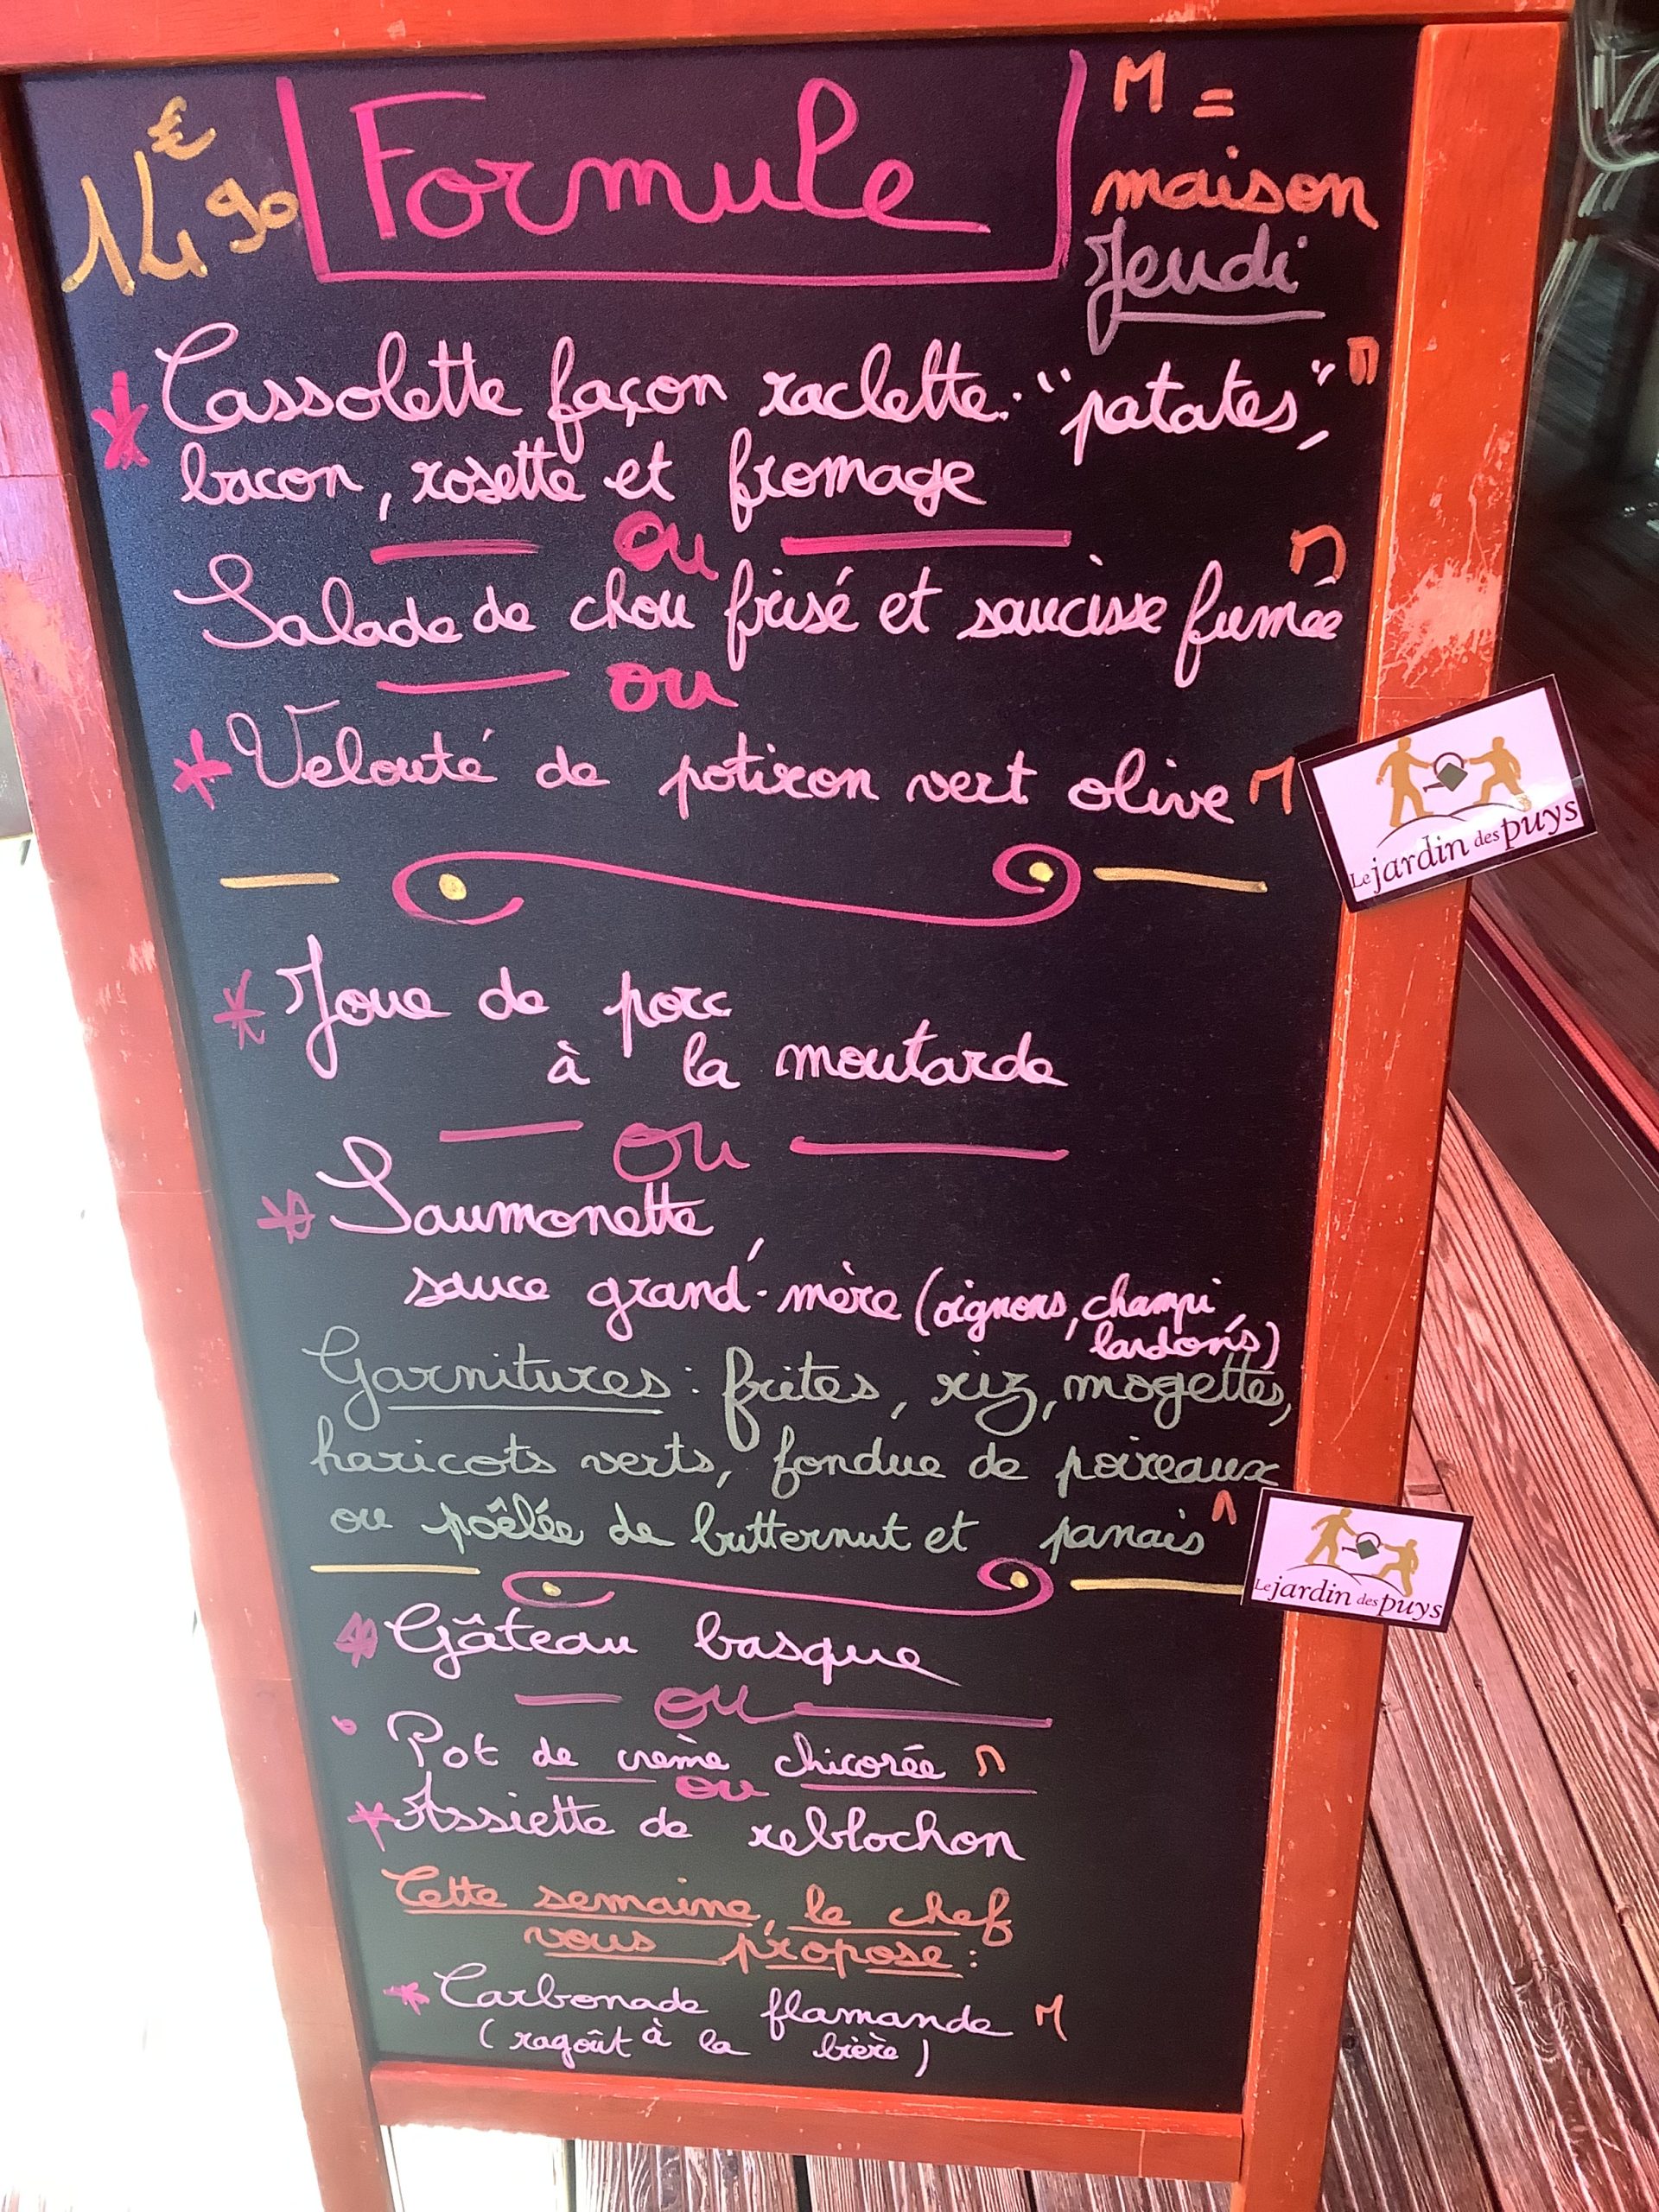 14€90 Formule M =
maison
Jeudi
* Cassolette façon raclette: "patates," M
bacon, rosette et fromage
ou
Salade de chou frisé et saucisse fumée M
ou
* Velouté de potiron vert olive M
Le jardin des puys
* Joue de porc
à la moutarde
ou
* Saumonette,
sauce grand'-mère (oignons, champi,
lardons)
Garnitures : frites, riz, mogettes,
haricots verts, fondue de poireaux
ou poêlée de butternut et panais M
Le jardin des puys
* Gâteau basque
ou
Pot de crème chicorée M
ou
* Assiette de reblochon
Cette semaine, le chef
vous propose :
* Carbonade flamande M
(ragoût à la bière)